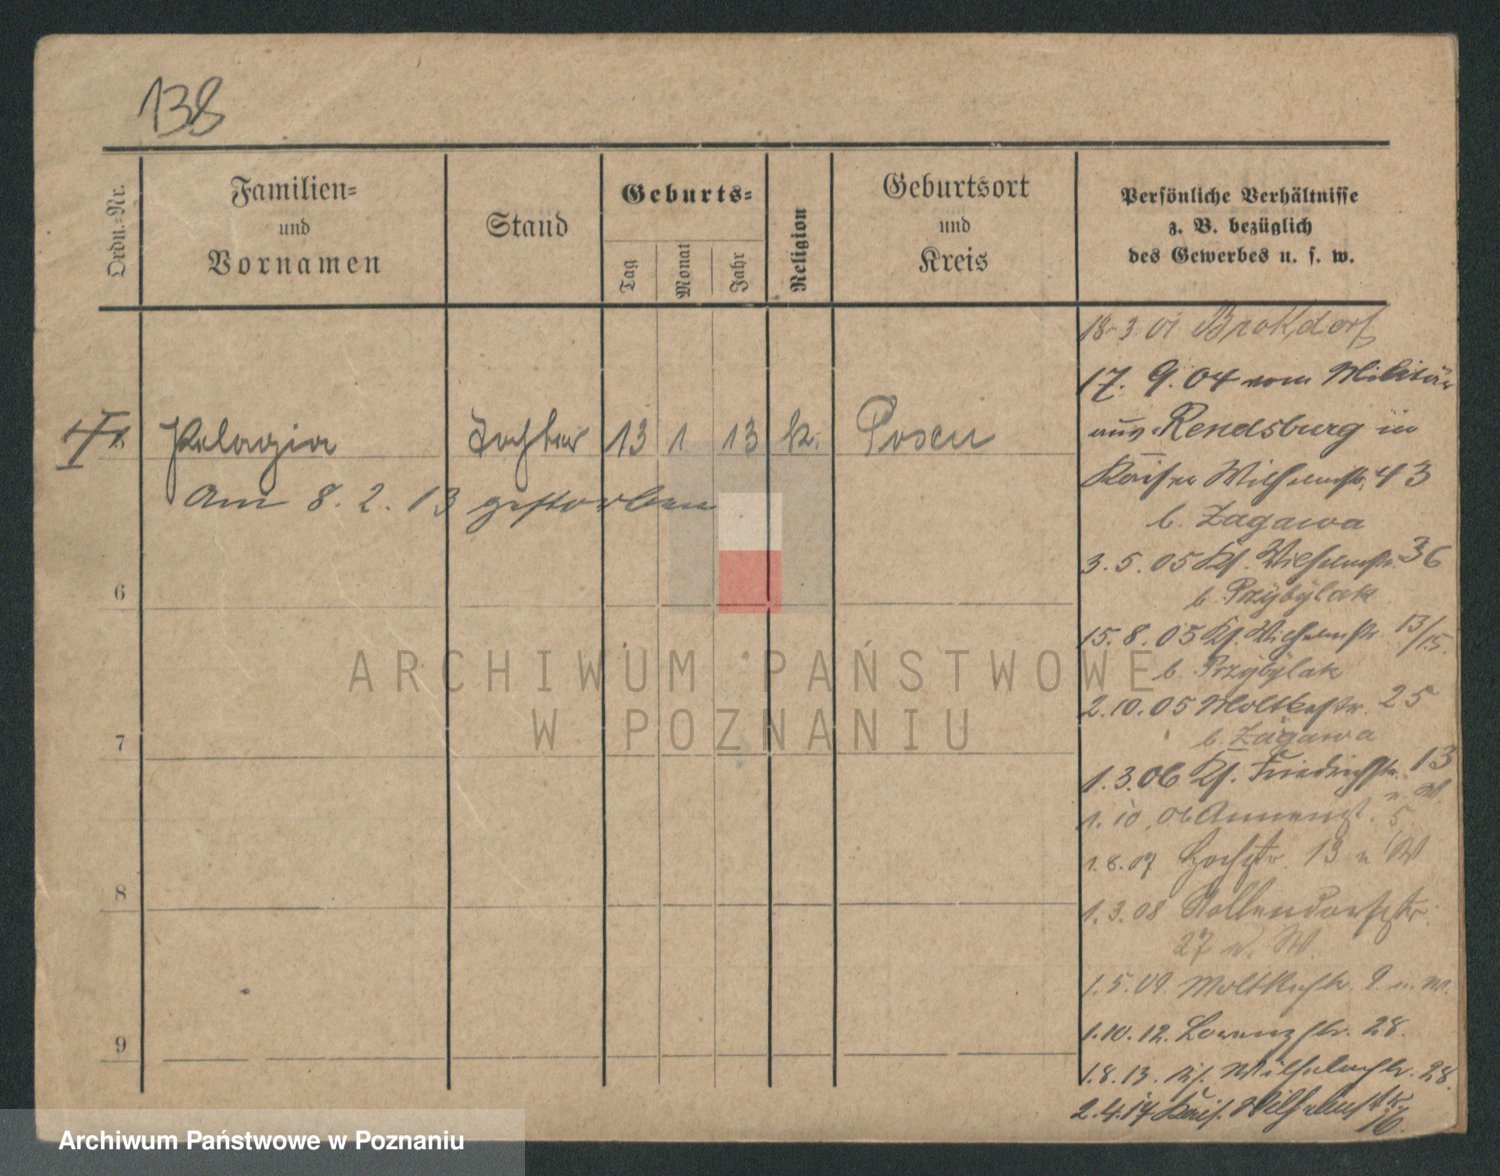 138
Ordn.-Nr.
Familien-
und
Vornamen
Stand
Geburts-
Tag
Monat
Jahr
Religion
Geburtsort
und
Kreis
Persönliche Verhältnisse
z. B. bezüglich
des Gewerbes u. s. w.
18-3 01 Brokdorf
17. 9. 04 vom Militär
aus Rendsburg in
Kaiser Wilhelmstr. 43
b. Zagawa
3. 5. 05 Ks. Wilhelmstr. 36
b. Przybylak
15. 8. 05 Ks. Wilhelmstr. 13/15.
b. Przybylak
2. 10. 05 Moltkestr. 25
b. Zagawa
1. 3. 06 Ks. Friedrichstr. 13
u. W.
1. 10. 06 Annenst. 5
1. 8. 07 Hochstr. 13 u W
1. 3. 08 Nollendorfstr.
27 u. W.
1. 5. 09. Moltkestr. 9. u. W.
1. 10. 12. Lorenzstr. 28.
1. 8. 13. Ks. Wilhelmstr. 28.
2. 4. 14 Kais. Wilhelmstr. 16.
Pelagia Tochter 13 1 13 k. Posen
Am 8. 2. 13 gestorben
6
7
8
9
ARCHIWUM PAŃSTWOWE
W POZNANIU
Archiwum Państwowe w Poznaniu